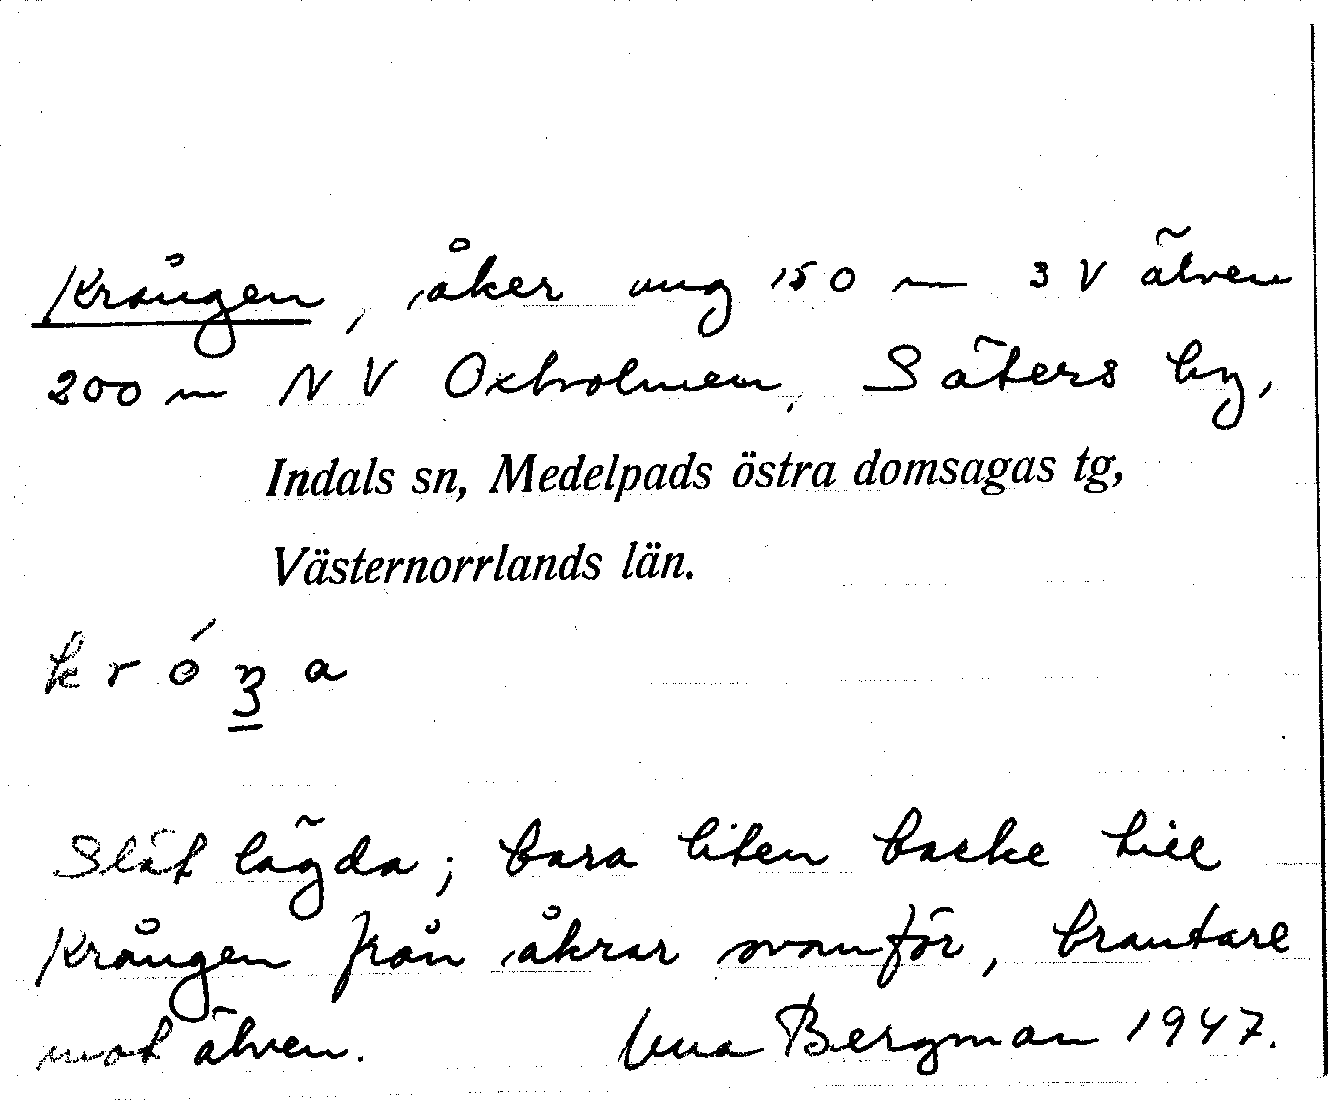 Krången, åker ung 150 m SV älven
200 m NV Oxholmen, Säters by,
Indals sn, Medelpads östra domsagas tg,
Västernorrlands län.
Slät lägda; bara liten backe till
Krången från åkrar ovanför, brantare
mot älven. Bergman 1947.